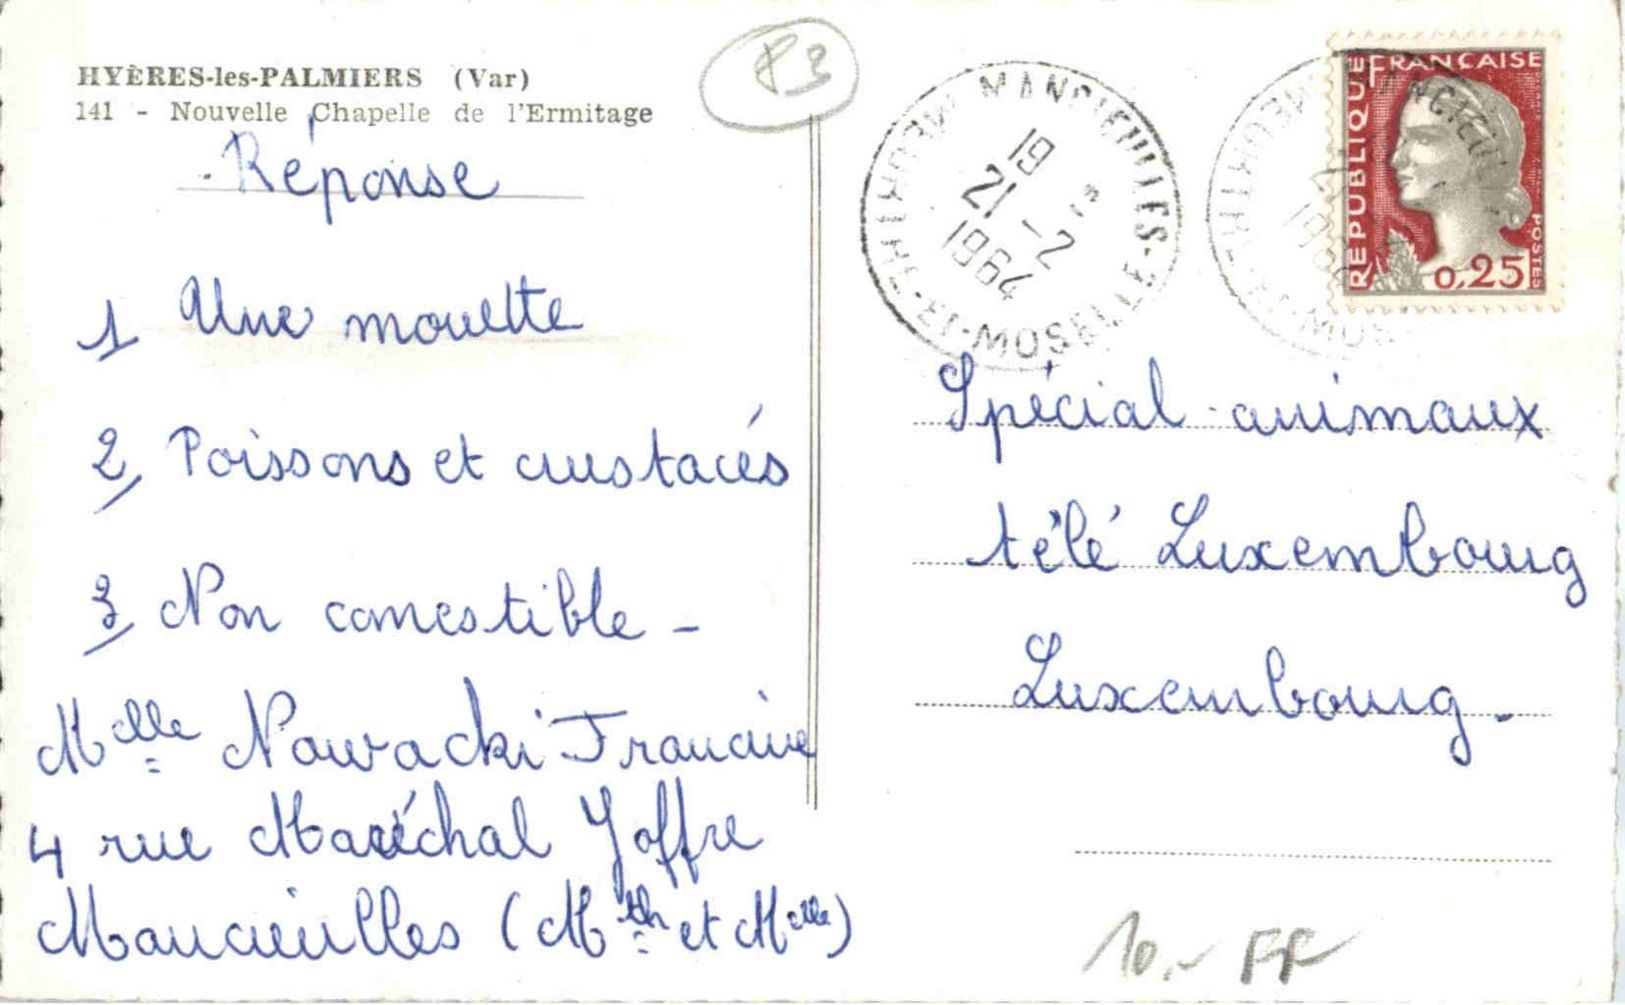 HYÈRES-les-PALMIERS (Var)
141 - Nouvelle Chapelle de l'Ermitage
Réponse
1 Une mouette
2, Poissons et crustacés
3, Non comestible -
Melle Nowacki Francine
4 rue Maréchal Joffre
Mancieulles (Mth et Melle)
83
MANCIEULLES
MEURTHE-ET-MOSELLE
19 H
21-2
1964
RÉPUBLIQUE FRANÇAISE
POSTES
0,25
Spécial animaux
télé Luxembourg
Luxembourg -
10.- FF